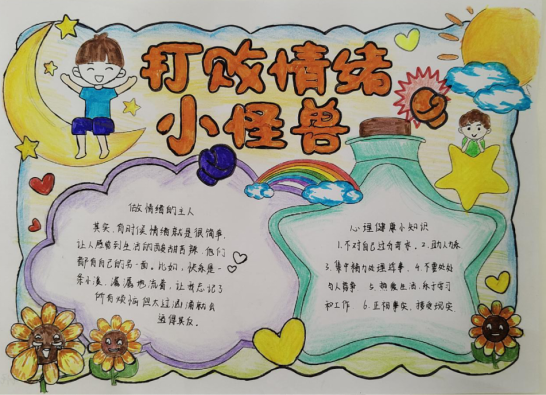 打败情绪
小怪兽
做情绪的主人
其实,有时候情绪就是很简单,
让人感受到生活的酸甜苦辣,他们
都有自己的另一面。比如:快乐是一
条小溪,潺潺地流着,让我忘记了
所有烦恼但太过汹涌就会
适得其反。
心理健康小知识
1.不对自己过分苛求。 2.
3.集中精力处理 事 4.不要处处
与人争 5.热爱生活,乐于学习
和工作 6.正视事实,接受现实